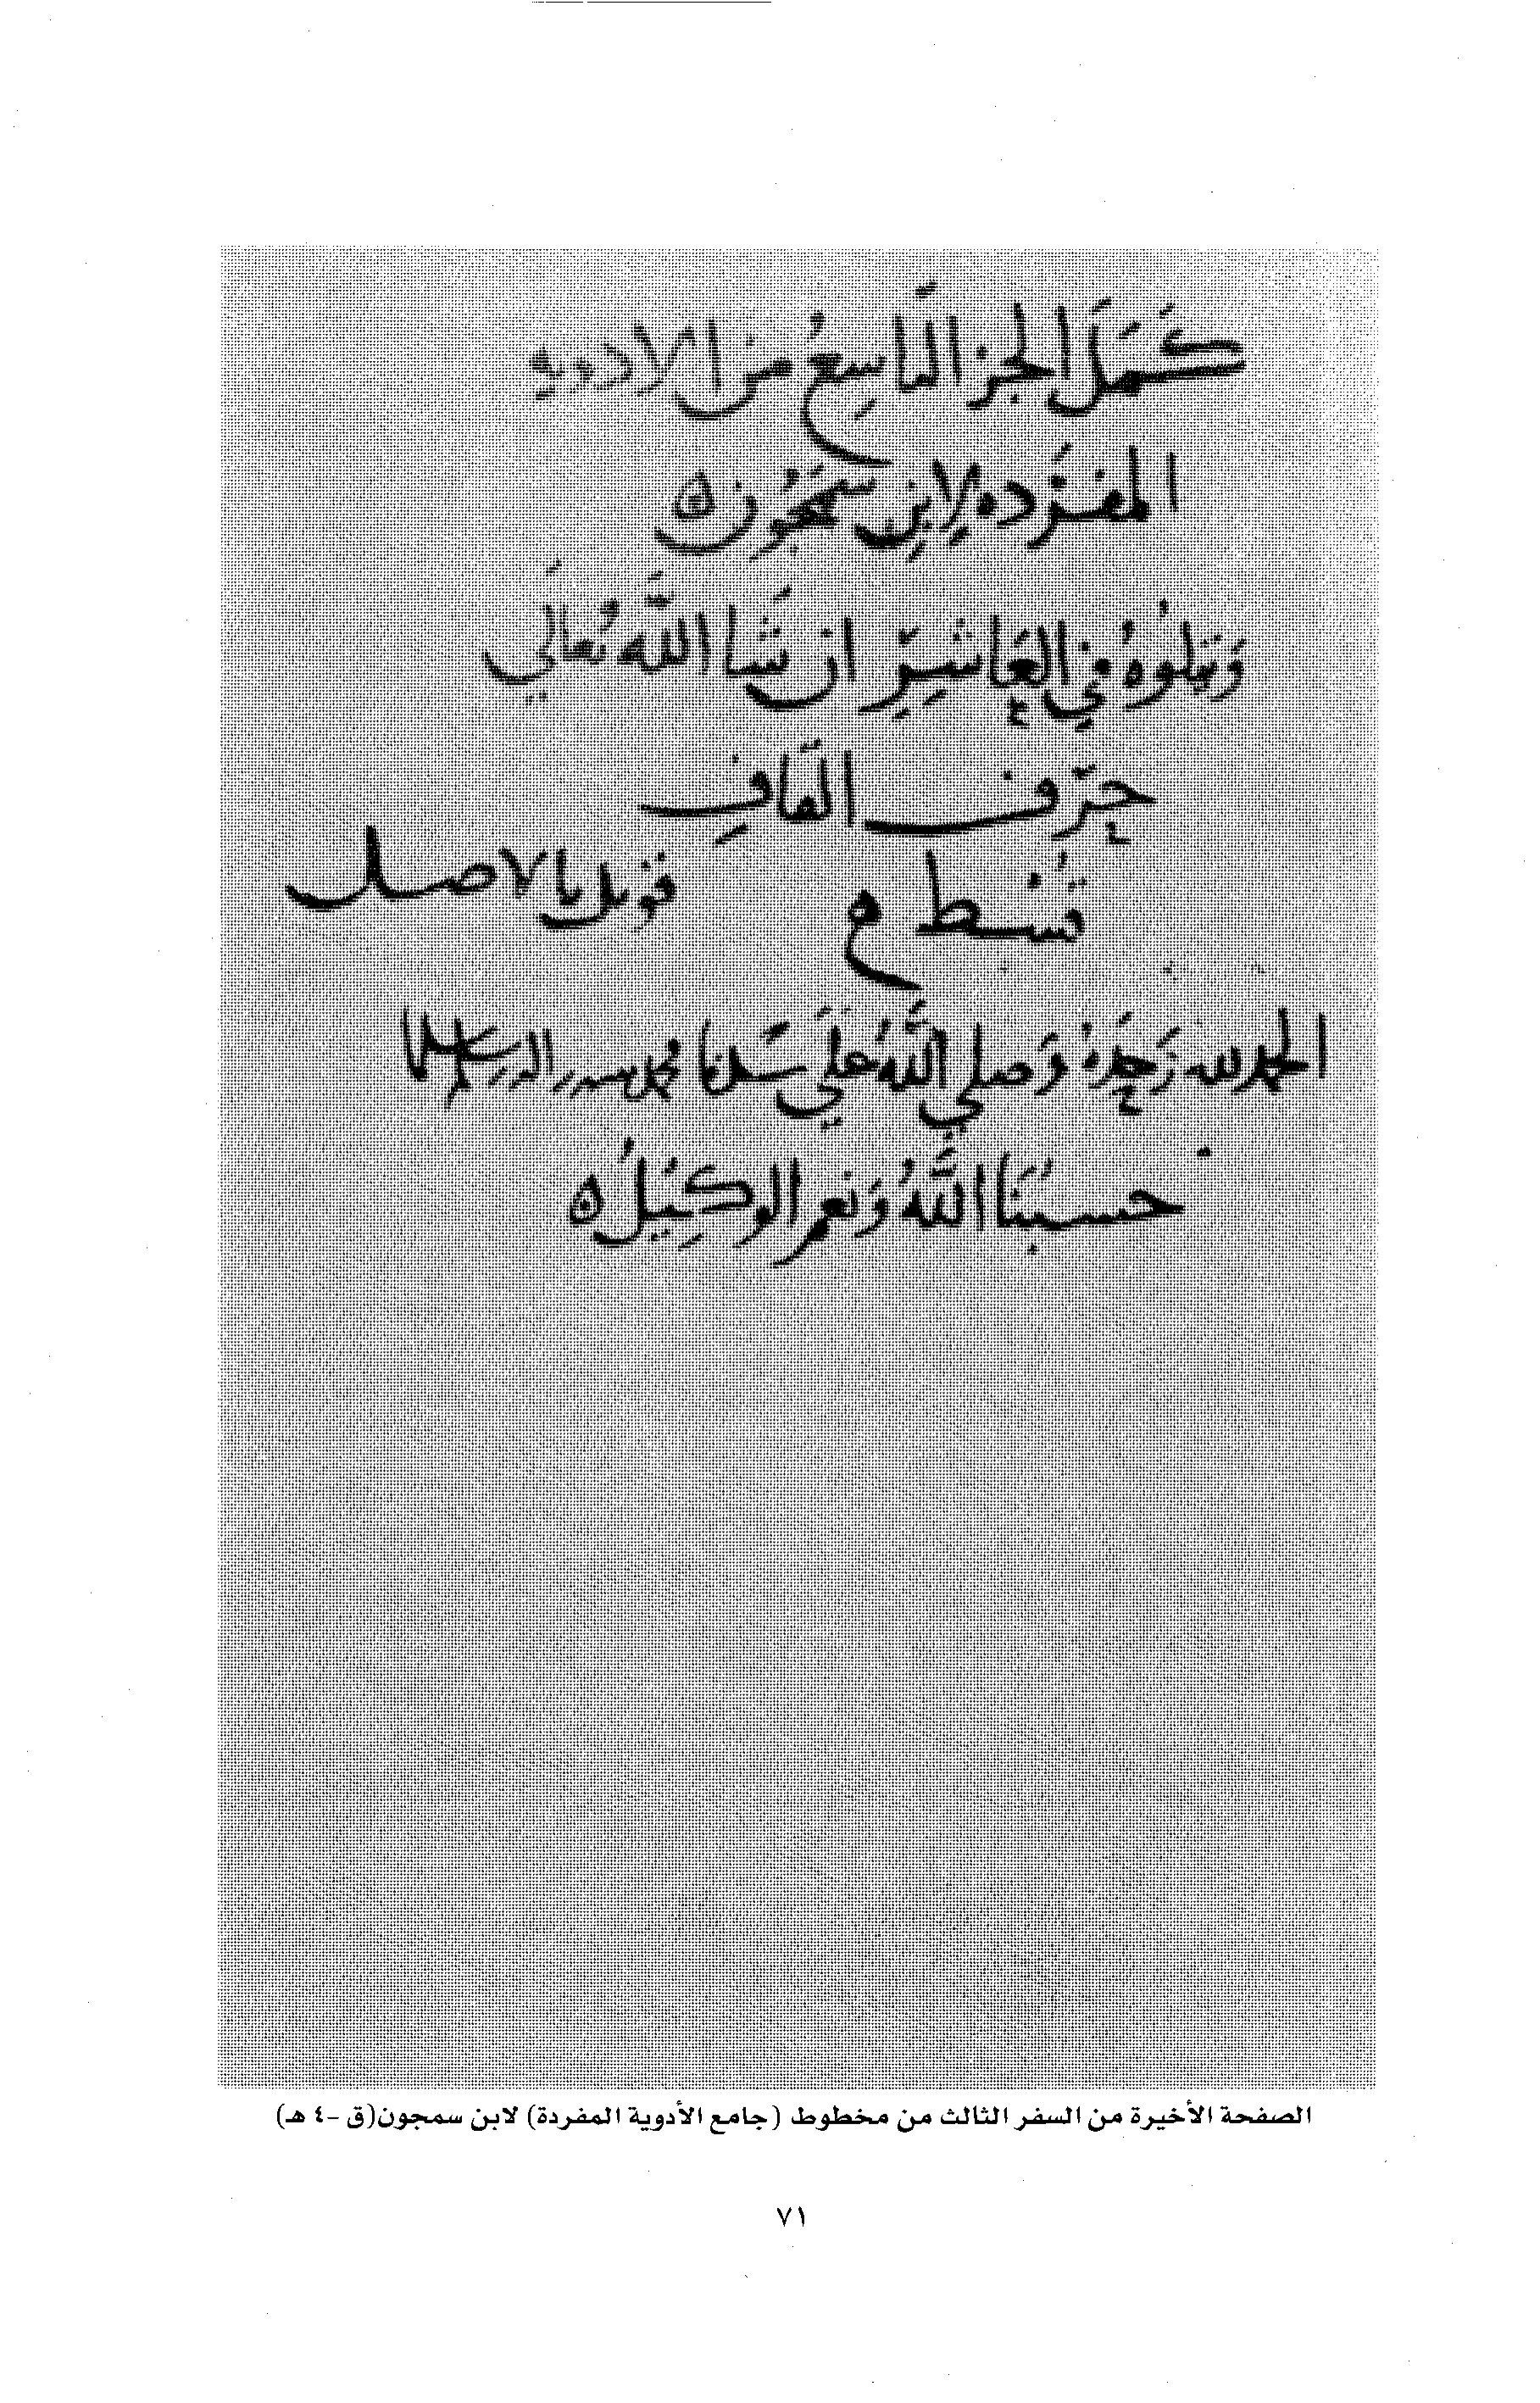 كَمَلَ الجز التاسِعُ من الادويه
المفرَده لِابنِ سَمَجُون ه
وَيَتلوُهُ في العَاشِرِ ان شَا اللَّه تُعالَي
حرف القافِ
قُسط ع قوبل بالاصل
الحمد لله وَحدَهُ وَصلي اللَّهُ عَلَي سَيدنا محمد
حسبُنَا اللَّهُ وَنعم الوكِيلُ ه
الصفحة الأخيرة من السفر الثالث من مخطوط (جامع الأدوية المفردة) لابن سمجون(ق -٤ هـ)
٧١